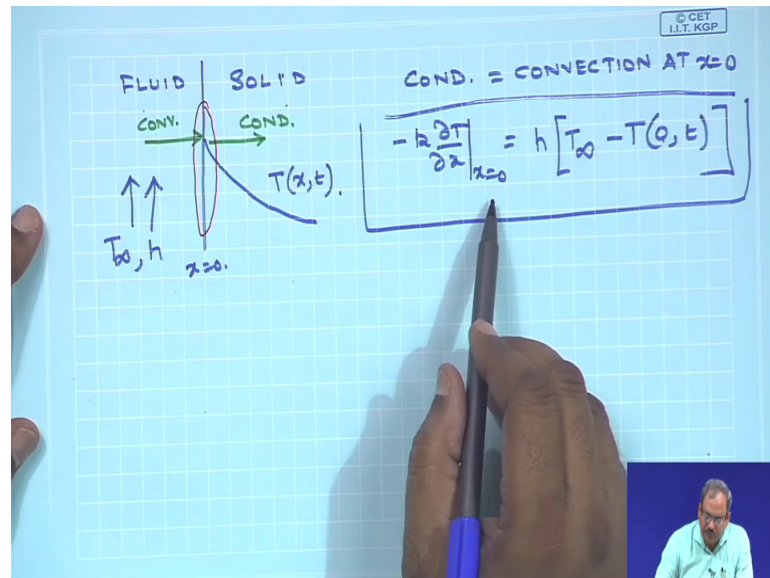 © CET
I.I.T. KGP
FLUID SOLID
CONV. COND.
T(x,t).
T∞, h
x=0.
COND. = CONVECTION AT x=0
-k ∂T/∂x |x=0 = h [T∞ - T(0,t)]